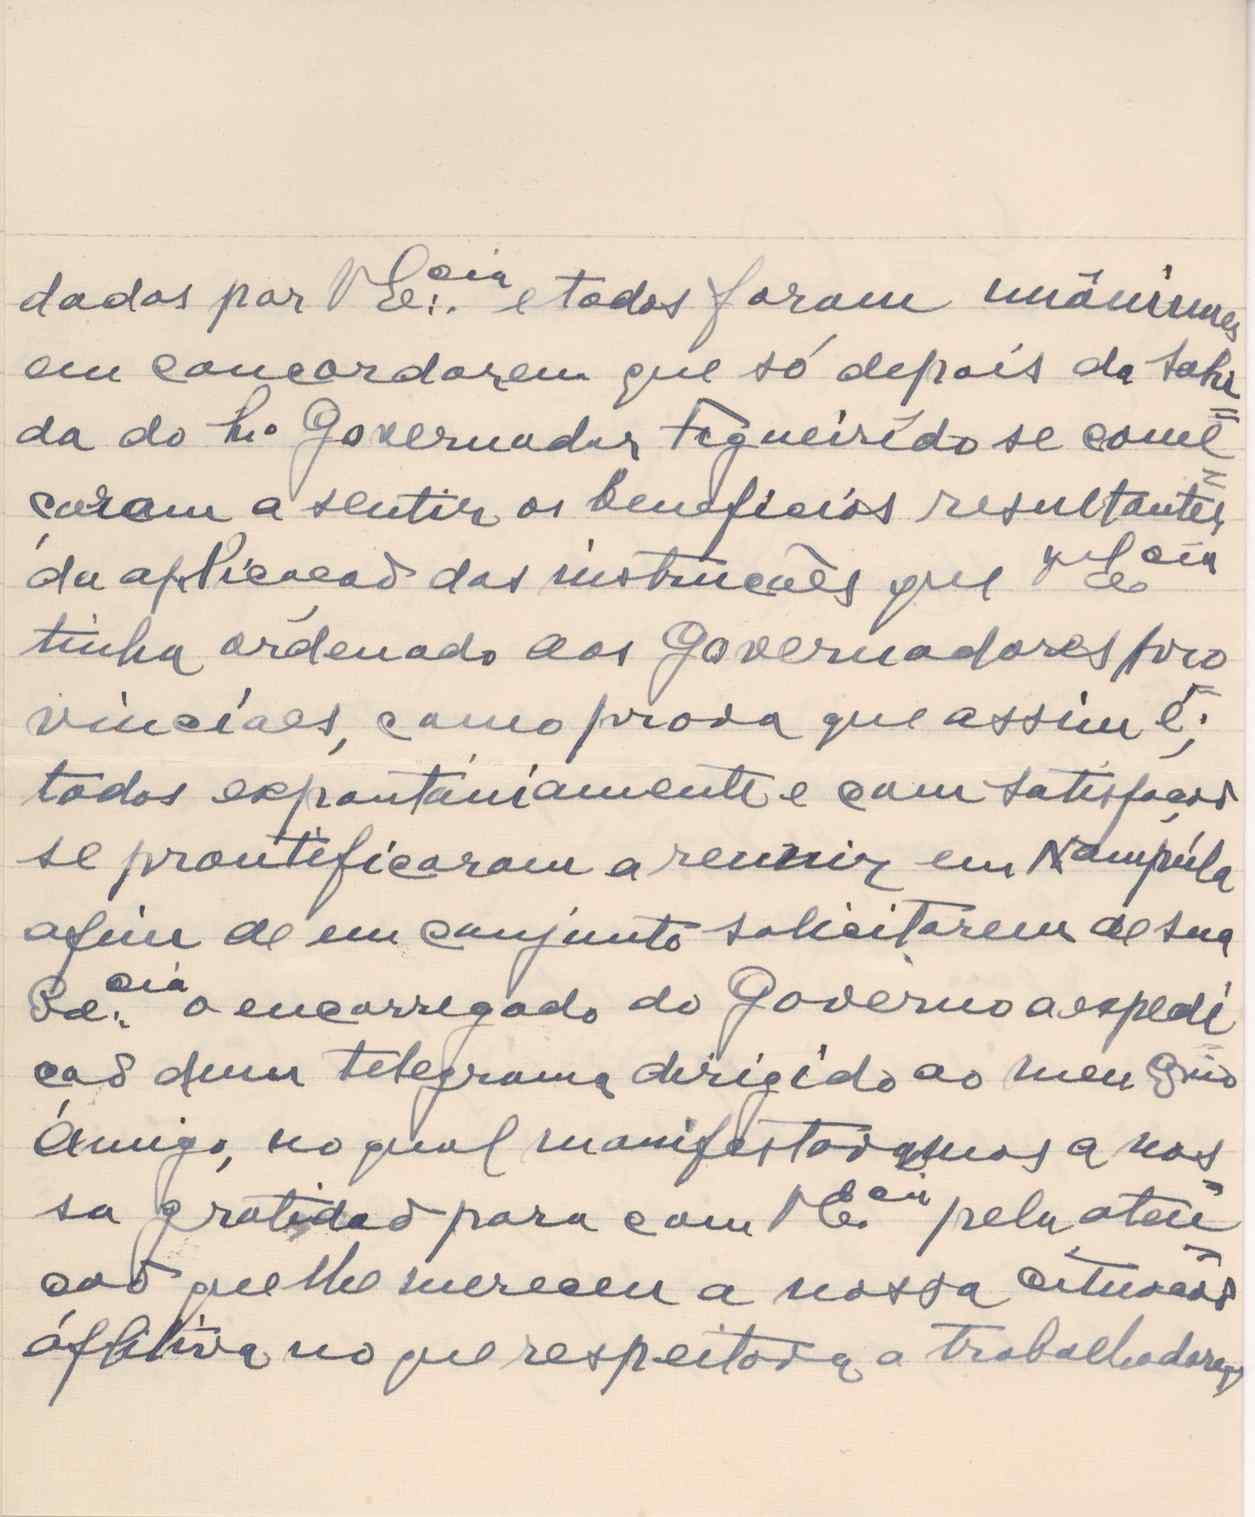 dadas por V. Ex.cia e todos foram unânimes
em concordarem que só depois da sahi=
da do Sr. Governador Figueirêdo se come=
çaram a sentir os beneficios resultantes
da aplicação das instruções que V. Ex.cia
tinha ordenado aos Governadores pro=
vinciaes, como prova que assim é;
todos expontâniamente e com satisfação
se prontificaram a reunir em Nampúla
afim de em conjunto solicitarem de sua
Ex.cia o encarregado do Governo a espedi=
ção dum telegrama dirigido ao meu Exmo
Amigo, no qual manifestavamos a nos=
sa gratidão para com V. Ex.cia pela aten=
ção que lhe mereceu a nossa cituação
áflitiva no que respeitava a trabalhadores,